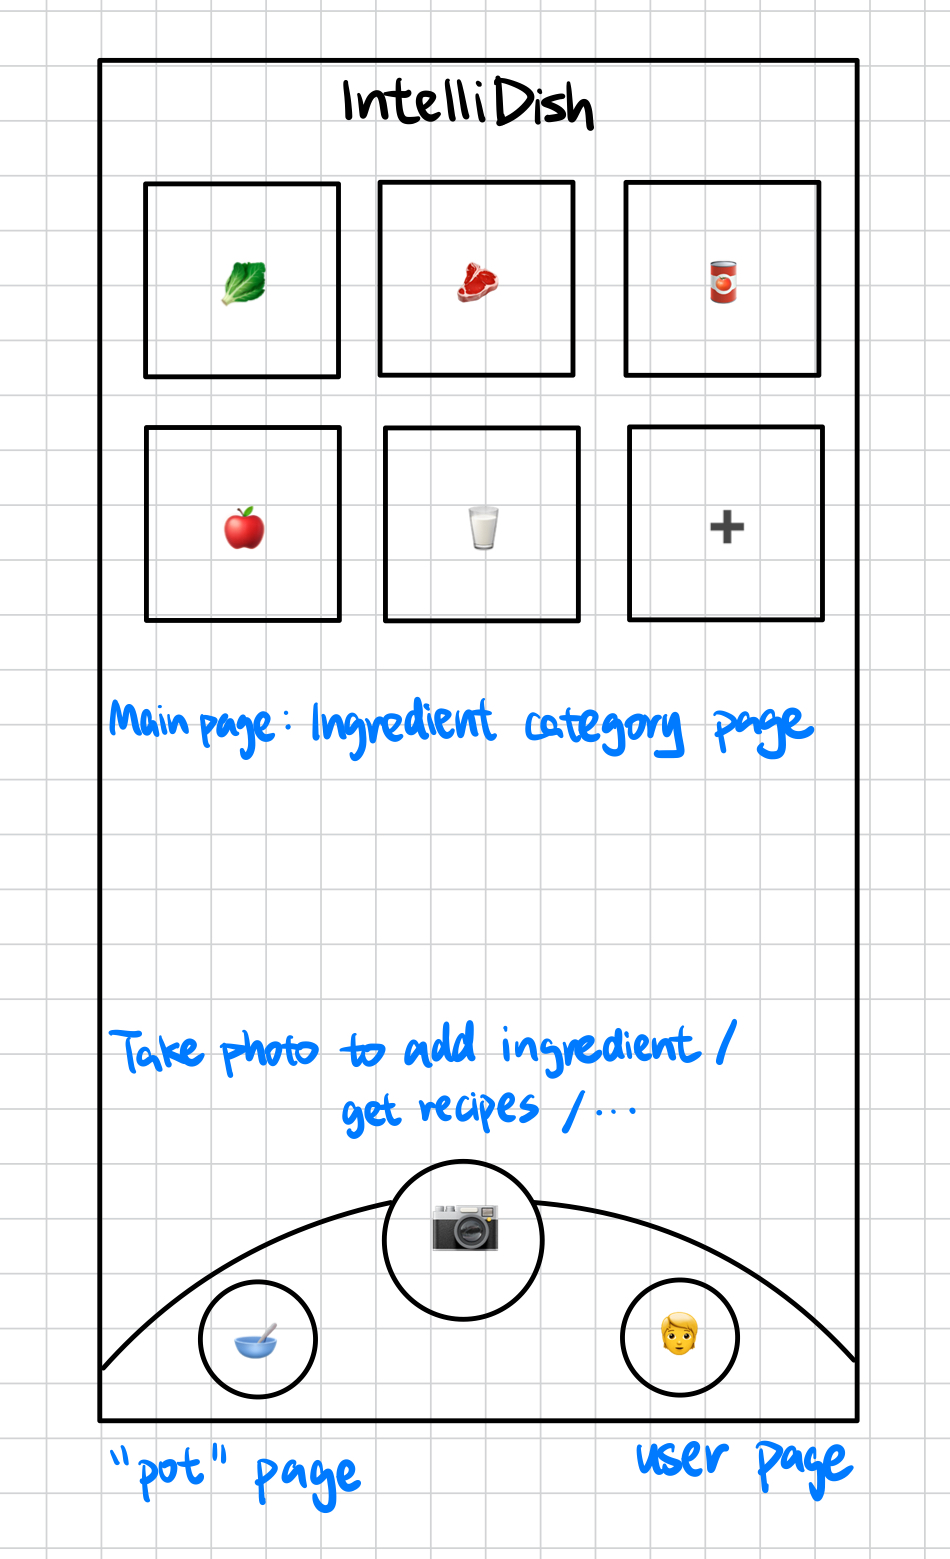 IntelliDish
Main page: Ingredient category page
Take photo to add ingredient /
get recipes / ...
"pot" page
user page